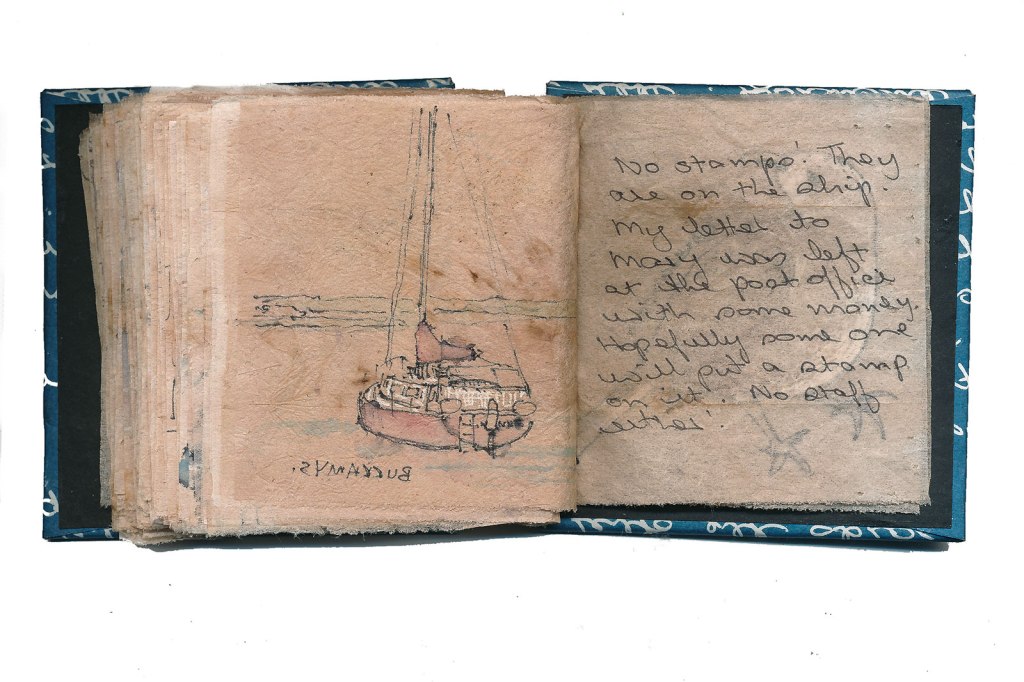 No stamps'. They
are on the ship.
My letter to
Mary was left
at the post office
with some money.
Hopefully some one
will put a stamp
on it'. No staff
either'